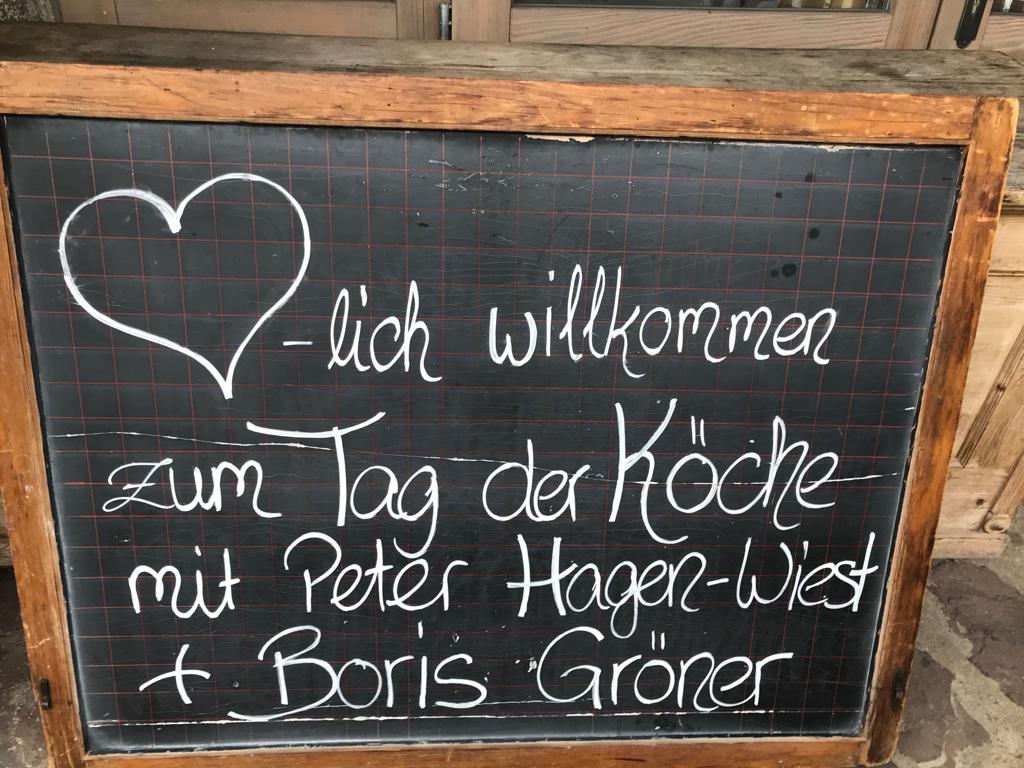 ♡-lich willkommen
zum Tag der Köche
mit Peter Hagen-Wiest
+ Boris Gröner